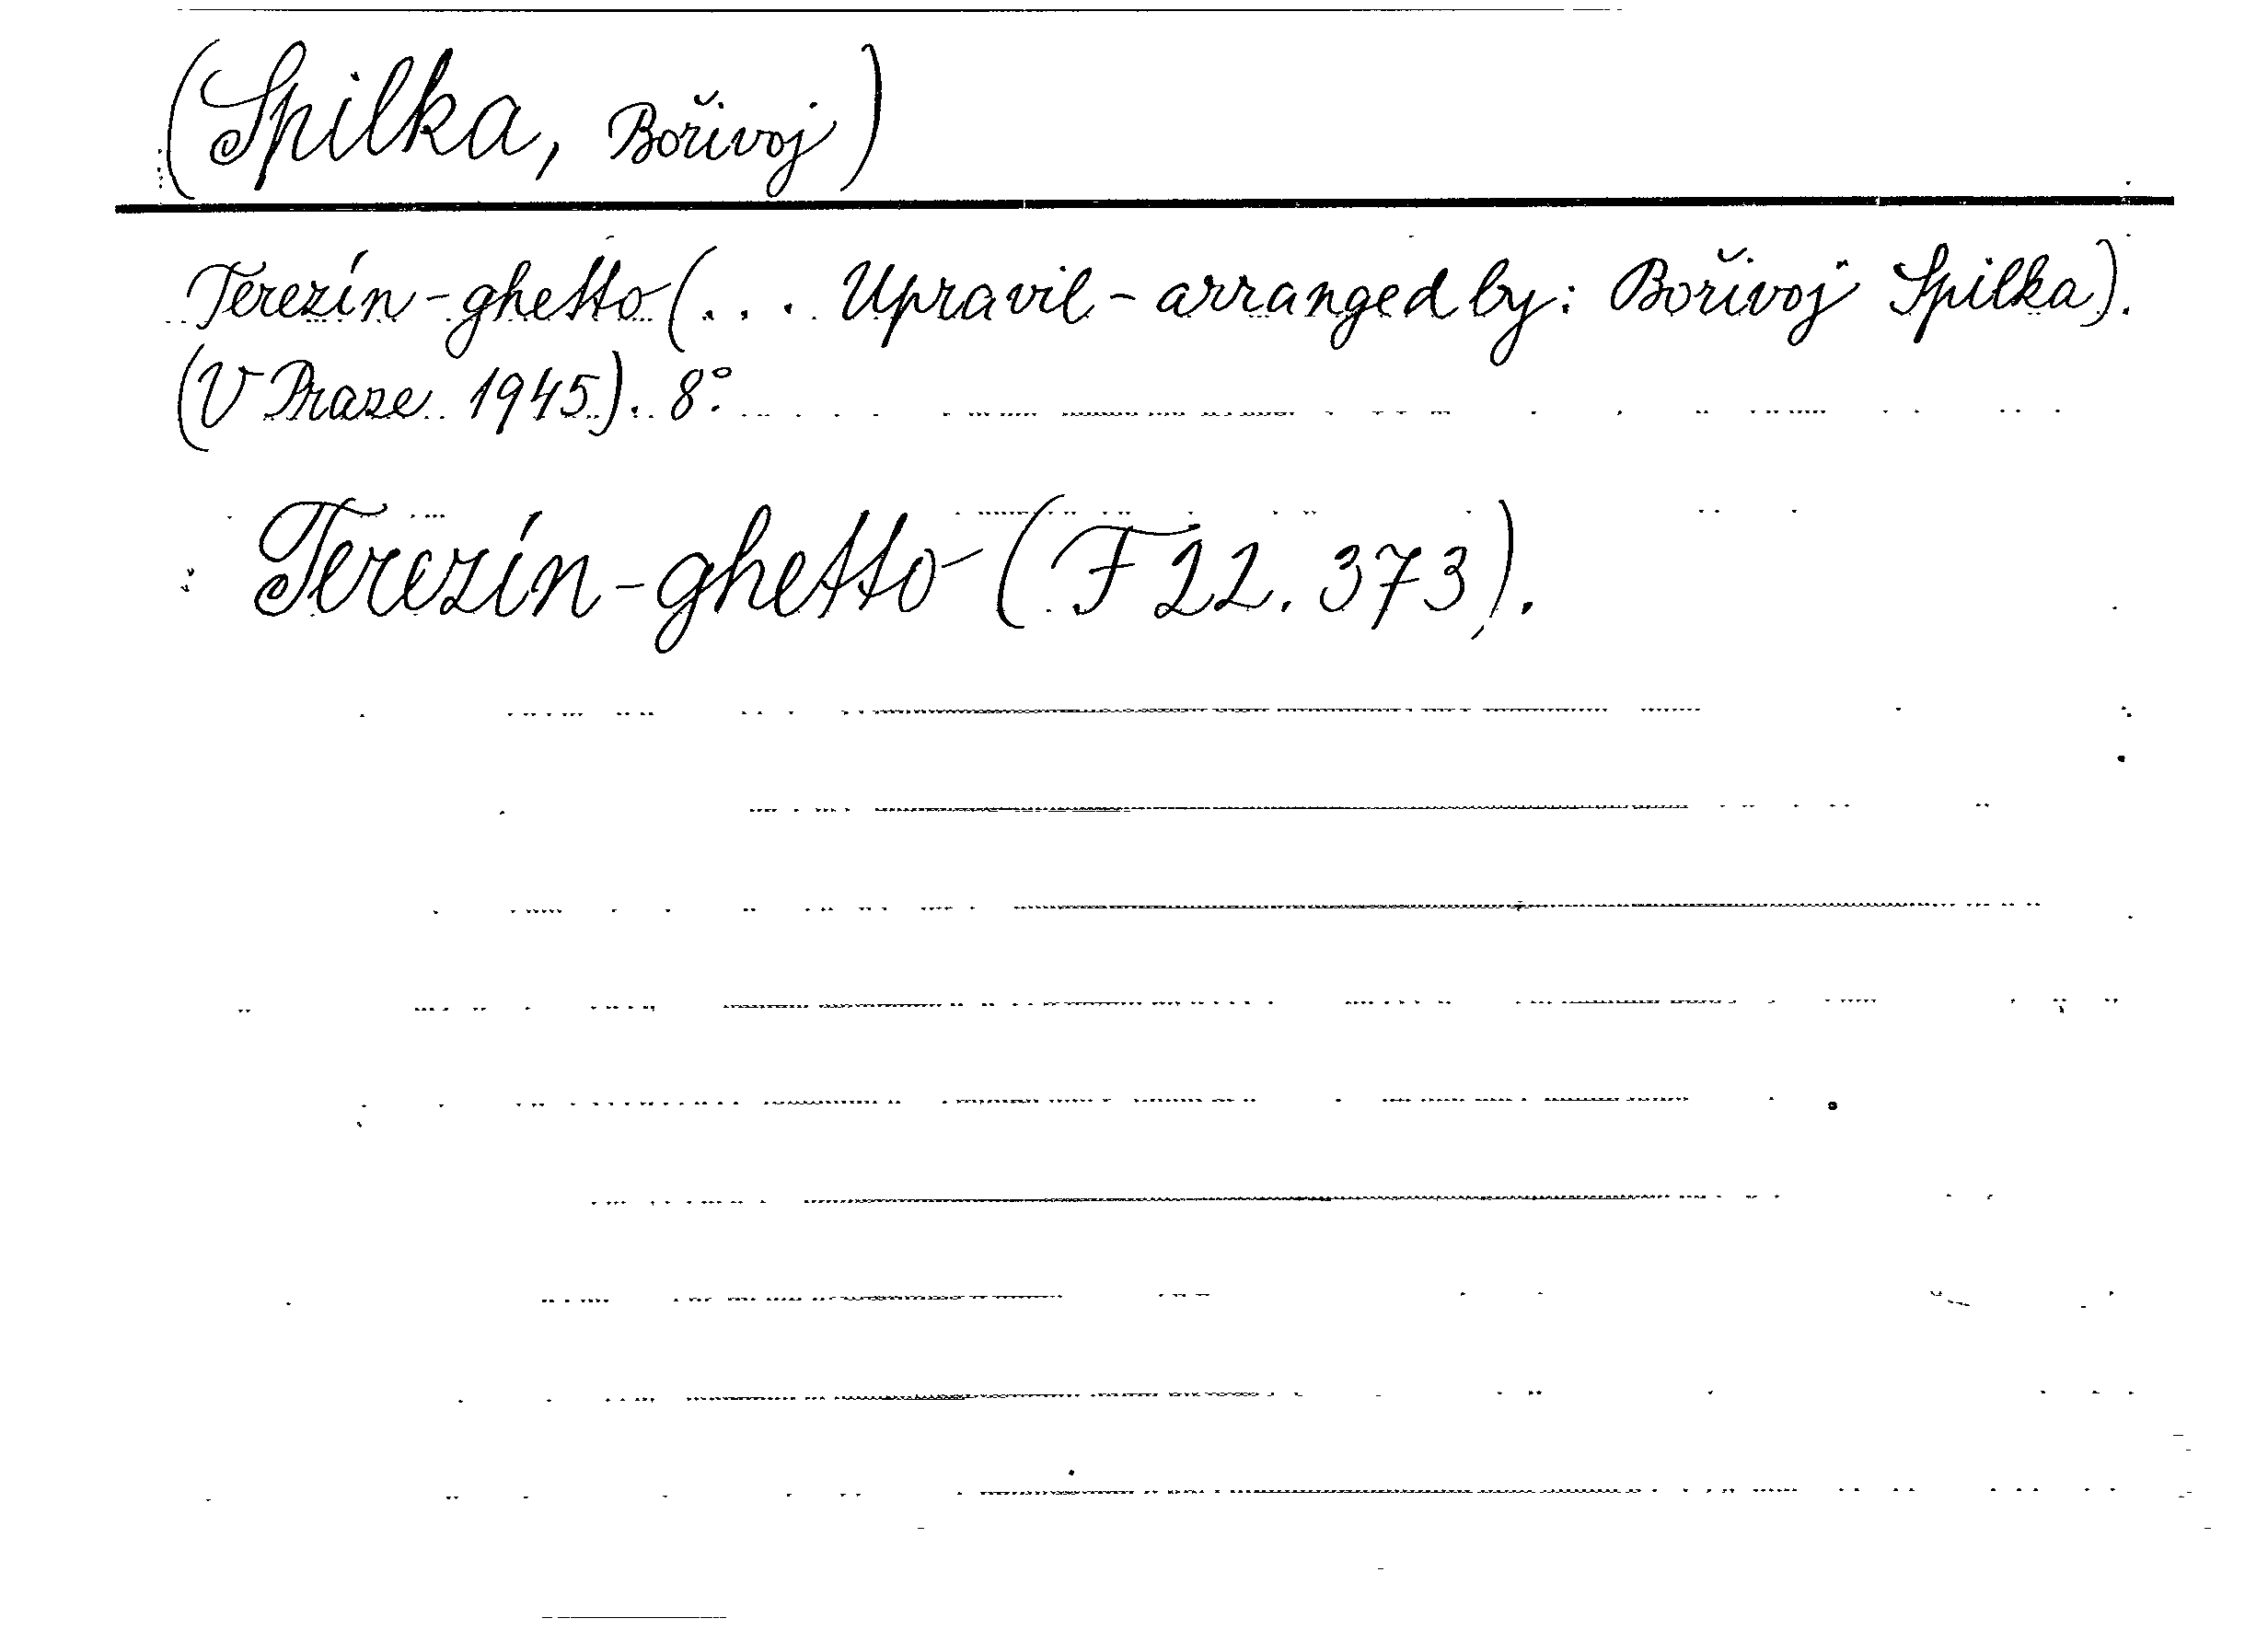 (Spilka, Bořivoj)
Terezín-ghetto (... Upravil - arranged by: Bořivoj Spilka).
(V Praze 1945). 8°.
Terezín-ghetto (F 22.373).